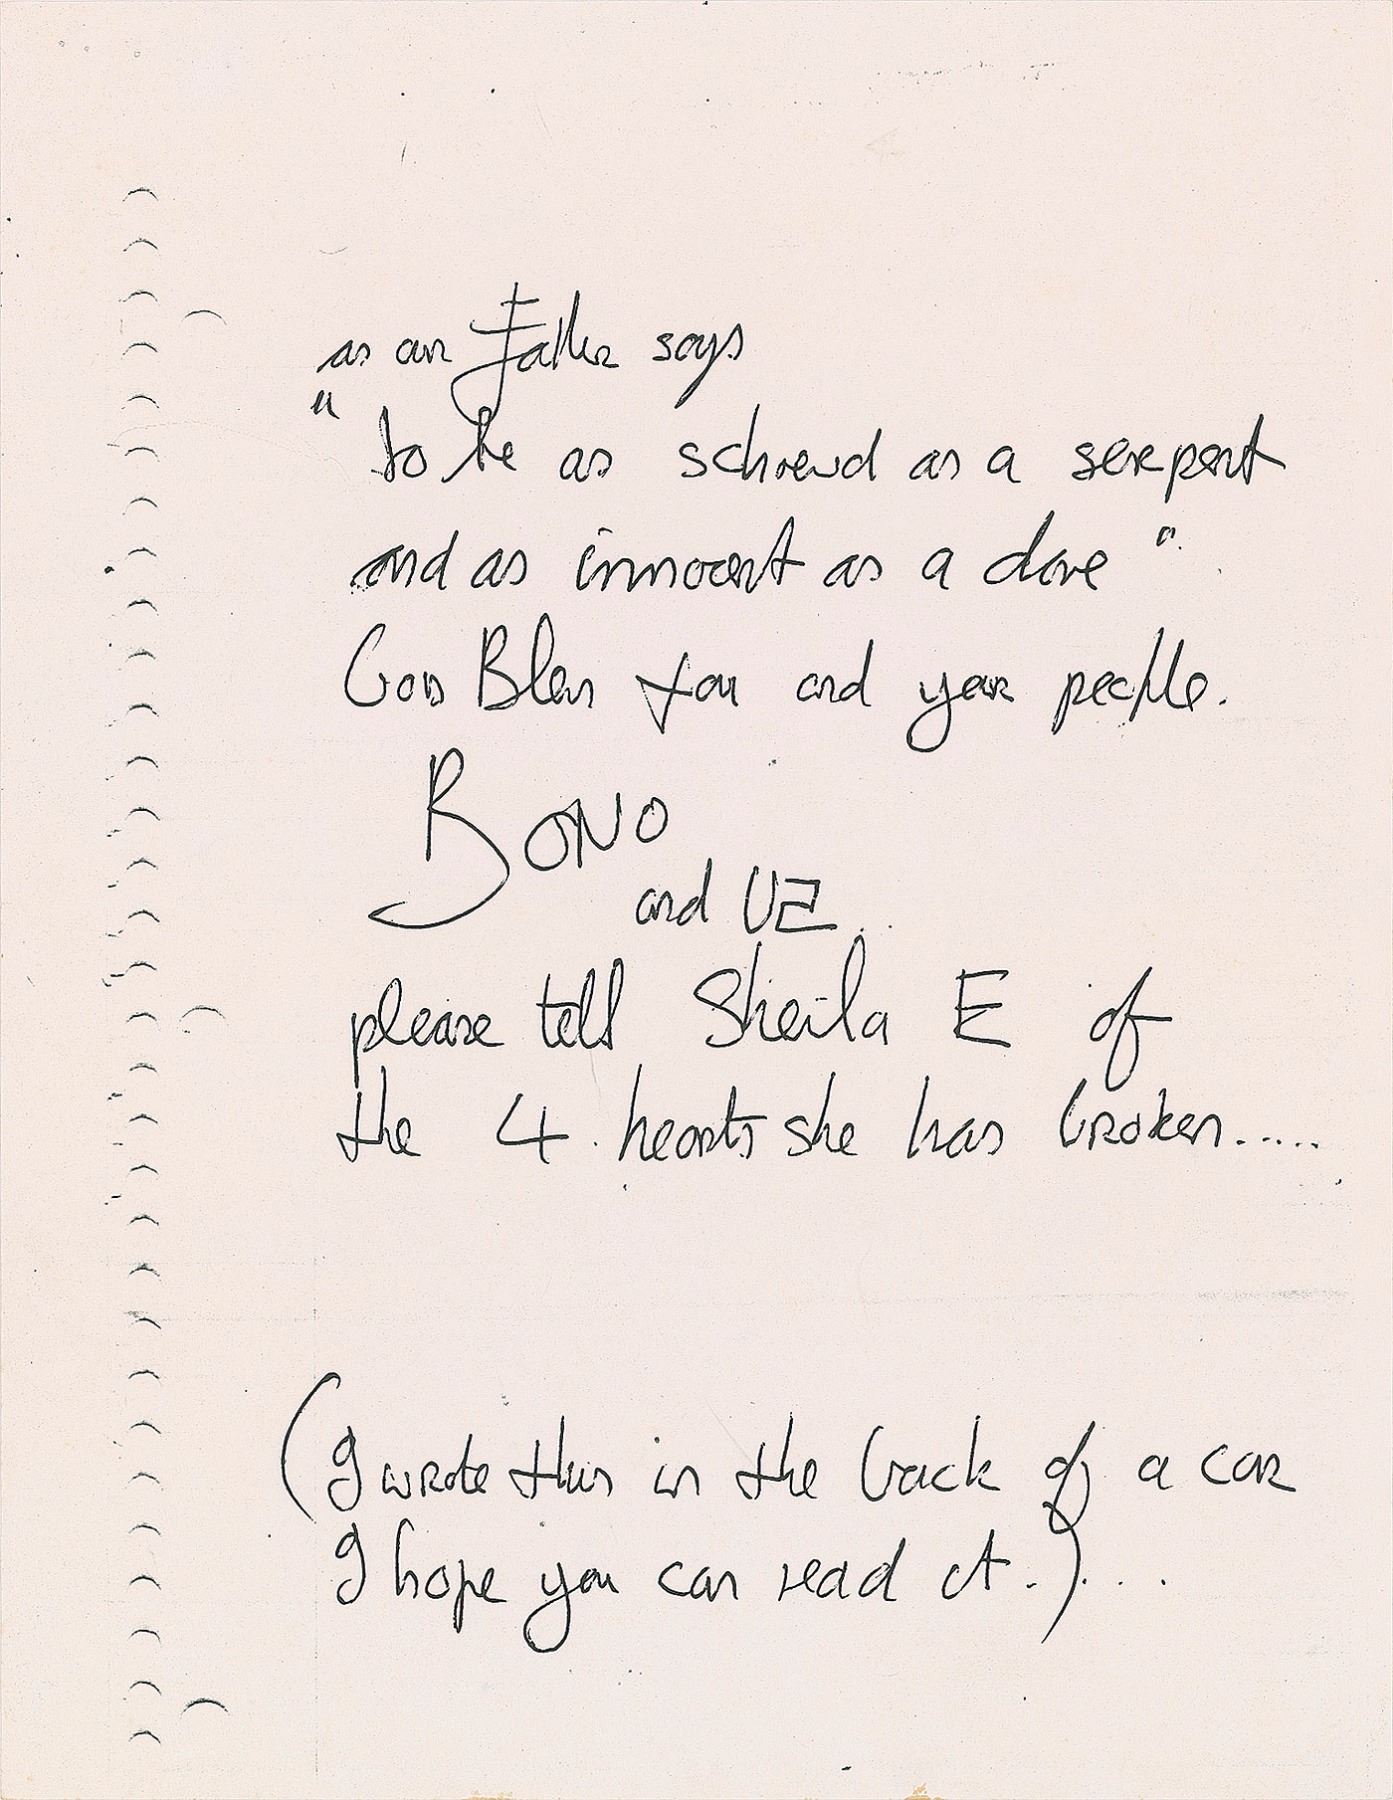 as our Father says
" to be as schrewd as a serpent
and as innocent as a dove ".
God Bless you and your people.
BONO
and U2
please tell Sheila E of
the 4 hearts she has broken.....
(I wrote this in the back of a car
I hope you can read it.)...